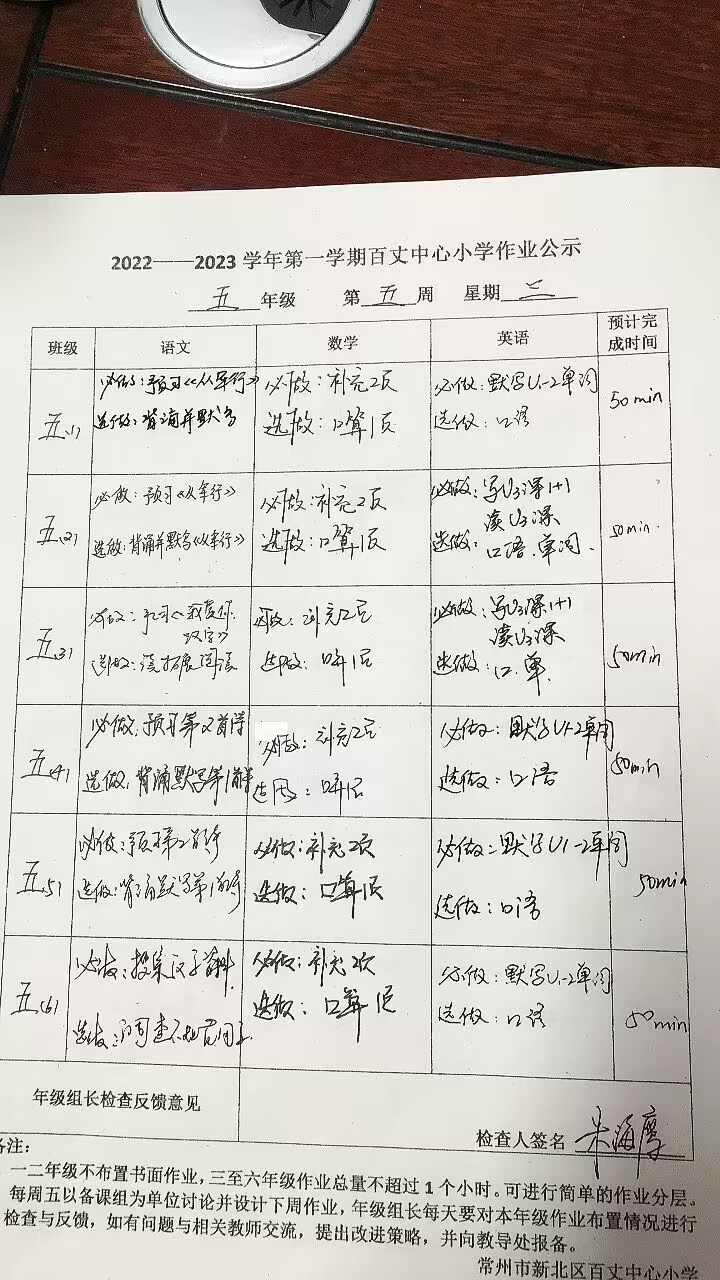 2022——2023 学年第一学期百丈中心小学作业公示
五 年级 第 五 周 星期 三
班级 语文 数学 英语 预计完成时间
五(1)
必做:预习《从军行》
选做:背诵并默写
必做:补充2页
选做:口算1页
必做:默写U1-2单词
选做:口语
50min
五(2)
必做:预习《从军行》
选做:背诵并默写《从军行》
必做:补充2页
选做:口算1页
必做:写U3课1+1
读U3课
选做:口语、单词.
50min.
五(3)
必做:预习《我爱你
汉字》
选做:读拓展阅读
必做:补充2页
选做:口算1页
必做:写U3课1+1
读U3课
选做:口.单.
50min
五(4)
必做:预习第2首诗
选做:背诵默写第1首诗
必做:补充2页
选做:口算1页
必做:默写U1-2单词
选做:口语
50min
五(5)
必做:预习第2首诗
选做:背诵默写第1首诗
必做:补充2页
选做:口算1页
必做:默写U1-2单词
选做:口语
50min
五(6)
必做:搜集汉字资料
选做:调查不规范用字
必做:补充2页
选做:口算1页
必做:默写U1-2单词
选做:口语
50min
年级组长检查反馈意见
检查人签名 朱海摩
备注:
一二年级不布置书面作业,三至六年级作业总量不超过1个小时。可进行简单的作业分层。
每周五以备课组为单位讨论并设计下周作业,年级组长每天要对本年级作业布置情况进行
检查与反馈,如有问题与相关教师交流,提出改进策略,并向教导处报备。
常州市新北区百丈中心小学